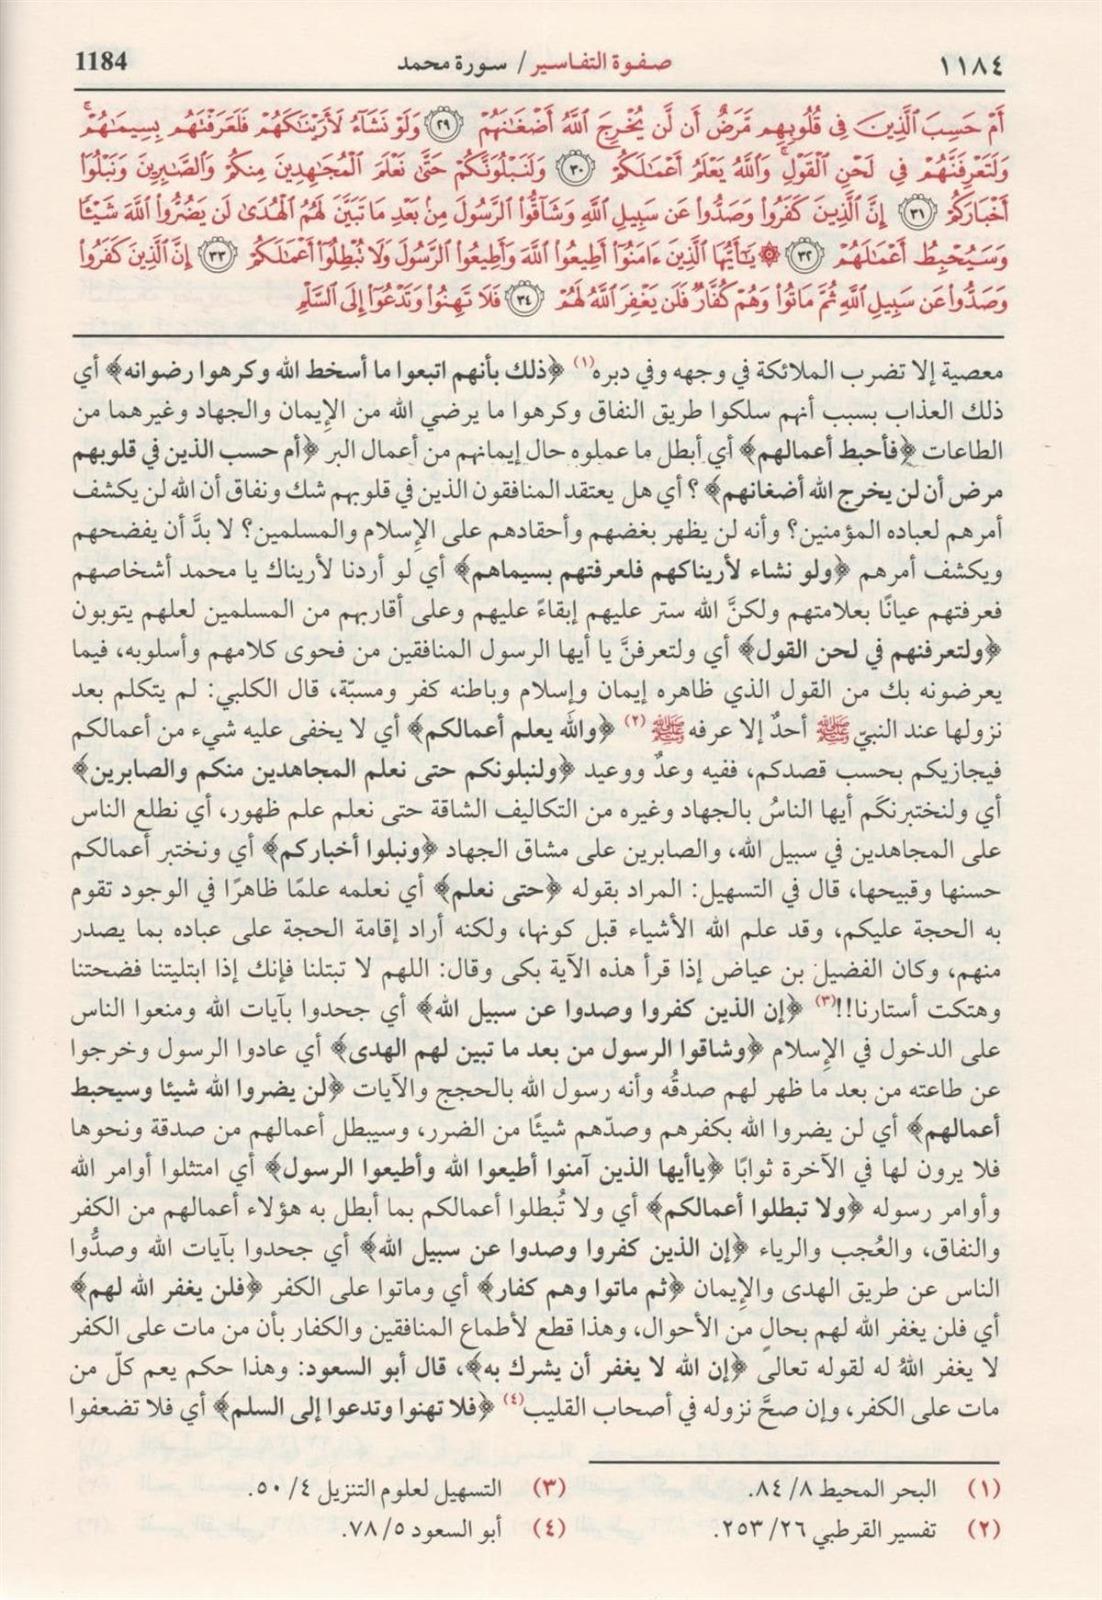 ١١٨٤ صفوة التفاسير / سورة محمد 1184
أَمْ حَسِبَ ٱلَّذِينَ فِي قُلُوبِهِم مَّرَضٌ أَن لَّن يُخْرِجَ ٱللَّهُ أَضْغَٰنَهُمْ ﴿٢٩﴾ وَلَوْ نَشَآءُ لَأَرَيْنَٰكَهُمْ فَلَعَرَفْتَهُم بِسِيمَٰهُمْ ۚ
وَلَتَعْرِفَنَّهُمْ فِي لَحْنِ ٱلْقَوْلِ ۚ وَٱللَّهُ يَعْلَمُ أَعْمَٰلَكُمْ ﴿٣٠﴾ وَلَنَبْلُوَنَّكُمْ حَتَّىٰ نَعْلَمَ ٱلْمُجَٰهِدِينَ مِنكُمْ وَٱلصَّٰبِرِينَ وَنَبْلُوَا۟
أَخْبَارَكُمْ ﴿٣١﴾ إِنَّ ٱلَّذِينَ كَفَرُوا۟ وَصَدُّوا۟ عَن سَبِيلِ ٱللَّهِ وَشَآقُّوا۟ ٱلرَّسُولَ مِنۢ بَعْدِ مَا تَبَيَّنَ لَهُمُ ٱلْهُدَىٰ لَن يَضُرُّوا۟ ٱللَّهَ شَيْـًٔا
وَسَيُحْبِطُ أَعْمَٰلَهُمْ ﴿٣٢﴾ ۞ يَٰٓأَيُّهَا ٱلَّذِينَ ءَامَنُوٓا۟ أَطِيعُوا۟ ٱللَّهَ وَأَطِيعُوا۟ ٱلرَّسُولَ وَلَا تُبْطِلُوٓا۟ أَعْمَٰلَكُمْ ﴿٣٣﴾ إِنَّ ٱلَّذِينَ كَفَرُوا۟
وَصَدُّوا۟ عَن سَبِيلِ ٱللَّهِ ثُمَّ مَاتُوا۟ وَهُمْ كُفَّارٌ فَلَن يَغْفِرَ ٱللَّهُ لَهُمْ ﴿٣٤﴾ فَلَا تَهِنُوا۟ وَتَدْعُوٓا۟ إِلَى ٱلسَّلْمِ
معصية إلا تضرب الملائكة في وجهه وفي دبره(١) ﴿ذلك بأنهم اتبعوا ما أسخط الله وكرهوا رضوانه﴾ أي
ذلك العذاب بسبب أنهم سلكوا طريق النفاق وكرهوا ما يرضي الله من الإِيمان والجهاد وغيرهما من
الطاعات ﴿فأحبط أعمالهم﴾ أي أبطل ما عملوه حال إيمانهم من أعمال البر ﴿أم حسب الذين في قلوبهم
مرض أن لن يخرج الله أضغانهم﴾ ؟ أي هل يعتقد المنافقون الذين في قلوبهم شك ونفاق أن الله لن يكشف
أمرهم لعباده المؤمنين؟ وأنه لن يظهر بغضهم وأحقادهم على الإِسلام والمسلمين؟ لا بدَّ أن يفضحهم
ويكشف أمرهم ﴿ولو نشاء لأريناكهم فلعرفتهم بسيماهم﴾ أي لو أردنا لأريناك يا محمد أشخاصهم
فعرفتهم عيانًا بعلامتهم ولكنَّ الله ستر عليهم إبقاءً عليهم وعلى أقاربهم من المسلمين لعلهم يتوبون
﴿ولتعرفنهم في لحن القول﴾ أي ولتعرفنَّ يا أيها الرسول المنافقين من فحوى كلامهم وأسلوبه، فيما
يعرضونه بك من القول الذي ظاهره إيمان وإسلام وباطنه كفر ومسبّة، قال الكلبي: لم يتكلم بعد
نزولها عند النبيّ ﷺ أحدٌ إلا عرفه ﷺ (٢) ﴿والله يعلم أعمالكم﴾ أي لا يخفى عليه شيء من أعمالكم
فيجازيكم بحسب قصدكم، ففيه وعدٌ ووعيد ﴿ولنبلونكم حتى نعلم المجاهدين منكم والصابرين﴾
أي ولنختبرنكَم أيها الناسُ بالجهاد وغيره من التكاليف الشاقة حتى نعلم علم ظهور، أي نطلع الناس
على المجاهدين في سبيل الله، والصابرين على مشاق الجهاد ﴿ونبلوا أخباركم﴾ أي ونختبر أعمالكم
حسنها وقبيحها، قال في التسهيل: المراد بقوله ﴿حتى نعلم﴾ أي نعلمه علمًا ظاهرًا في الوجود تقوم
به الحجة عليكم، وقد علم الله الأشياء قبل كونها، ولكنه أراد إقامة الحجة على عباده بما يصدر
منهم، وكان الفضيل بن عياض إذا قرأ هذه الآية بكى وقال: اللهم لا تبتلنا فإنك إذا ابتليتنا فضحتنا
وهتكت أستارنا!!(٣) ﴿إن الذين كفروا وصدوا عن سبيل الله﴾ أي جحدوا بآيات الله ومنعوا الناس
على الدخول في الإِسلام ﴿وشاقوا الرسول من بعد ما تبين لهم الهدى﴾ أي عادوا الرسول وخرجوا
عن طاعته من بعد ما ظهر لهم صدقُه وأنه رسول الله بالحجج والآيات ﴿لن يضروا الله شيئا وسيحبط
أعمالهم﴾ أي لن يضروا الله بكفرهم وصدّهم شيئًا من الضرر، وسيبطل أعمالهم من صدقة ونحوها
فلا يرون لها في الآخرة ثوابًا ﴿ياأيها الذين آمنوا أطيعوا الله وأطيعوا الرسول﴾ أي امتثلوا أوامر الله
وأوامر رسوله ﴿ولا تبطلوا أعمالكم﴾ أي ولا تُبطلوا أعمالكم بما أبطل به هؤلاء أعمالهم من الكفر
والنفاق، والعُجب والرياء ﴿إن الذين كفروا وصدوا عن سبيل الله﴾ أي جحدوا بآيات الله وصدُّوا
الناس عن طريق الهدى والإِيمان ﴿ثم ماتوا وهم كفار﴾ أي وماتوا على الكفر ﴿فلن يغفر الله لهم﴾
أي فلن يغفر الله لهم بحالٍ من الأحوال، وهذا قطع لأطماع المنافقين والكفار بأن من مات على الكفر
لا يغفر اللهُ له لقوله تعالى ﴿إن الله لا يغفر أن يشرك به﴾، قال أبو السعود: وهذا حكم يعم كلّ من
مات على الكفر، وإن صحَّ نزوله في أصحاب القليب(٤) ﴿فلا تهنوا وتدعوا إلى السلم﴾ أي فلا تضعفوا
(١) البحر المحيط ٨/ ٨٤. (٣) التسهيل لعلوم التنزيل ٤/ ٥٠.
(٢) تفسير القرطبي ٢٦/ ٢٥٣. (٤) أبو السعود ٥/ ٧٨.